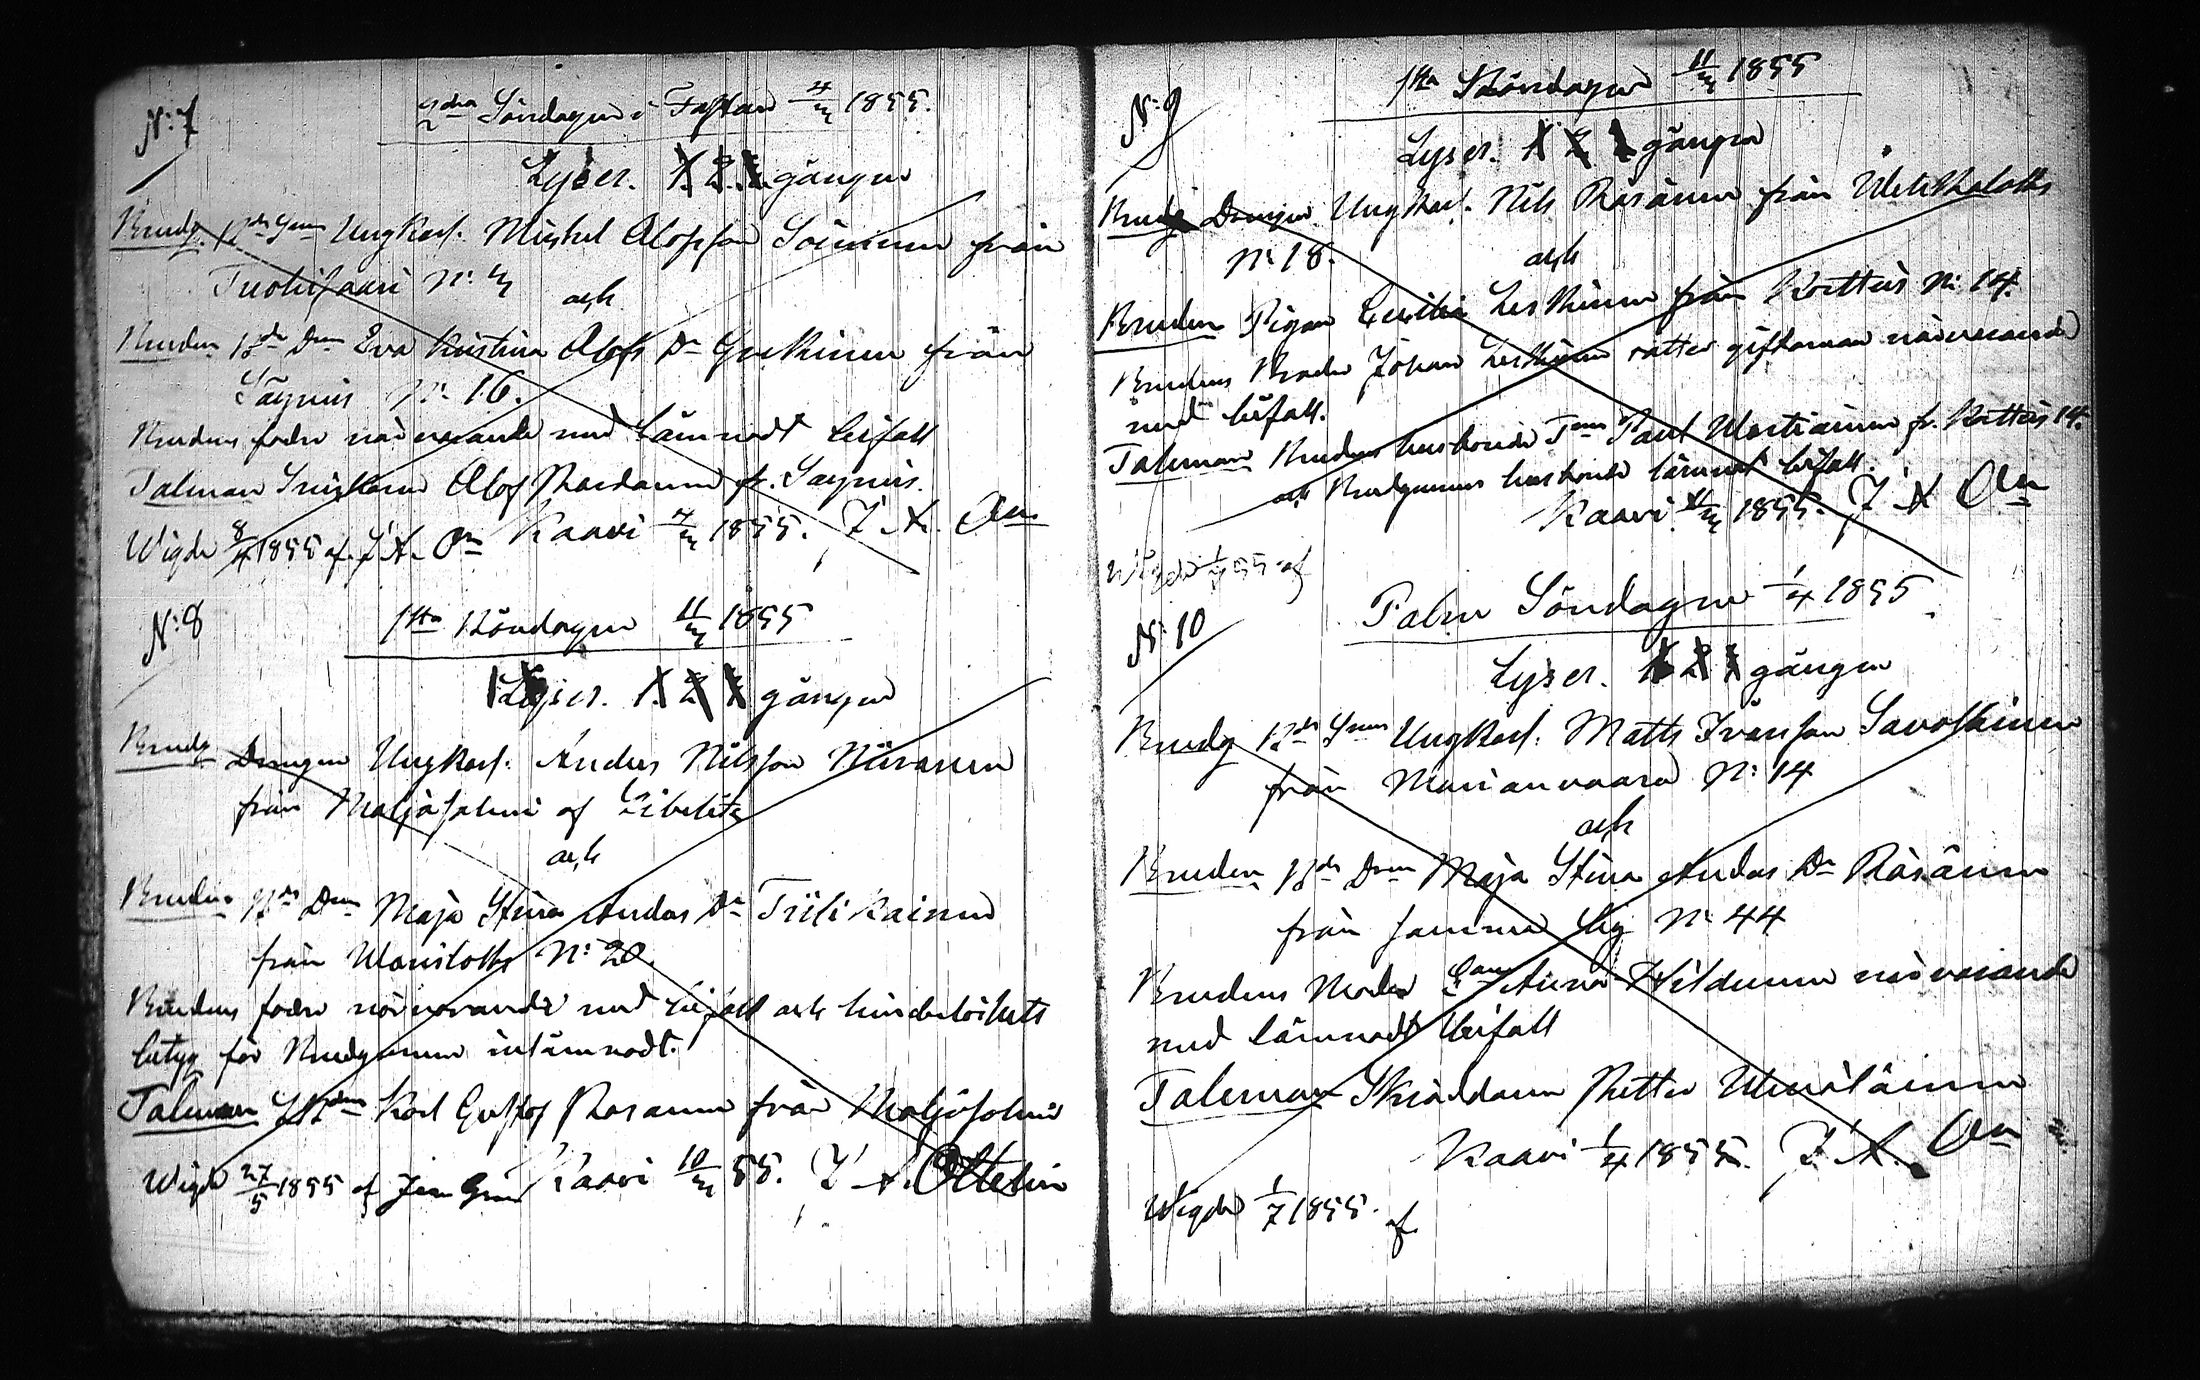 N:7
2dra Söndagen i Fastan 4/3 1855.
Lyser. 1. 2. 3. gången
Brudg. Bde Snn Ungkarl. Mickel Olofsson Soininen från
Tuotisaari N: 3
och
Bruden Bde Dnn Eva Kristina Olofs Dr
från
Säynus N: 16.
Brudens fader närvarande med lämnadt bifall
Talman Olof Räsänen fr. Säynus.
Wigde 8/4 1855 af J. A. Orn Kaavi 4/3 1855. J. A. Orn
N:8
1sta Böndagen 11/3 1855
Lyser. 1. 2. 3. gången
Brudg Drengen Ungkarl. Anders Nilsson Niiranen
från Maljasalmi af Libelitz
och
Bruden Bde Dnn Maja Stina Anders Dr Tiilikainen
från Wanilotts N: 20.
Brudens fader närvarande med bifall och hinderlöshets
betyg för Brudgummen inlämnadt.
Talman Karl Gustaf Rosanen från Maljasalmi
Wigde 27/5 1855 af Kaavi 10/3 55. J. A. Ottelin
N:9
1sta Böndagen 11/3 1855
Lyser. 1 2 3 gången
Brudg Drengen Ungkarl. Nils Räsänen från
N: 18.
och
Bruden Pigan Cecilia Leskinen från Kortteis N: 14.
Brudens Broder Johan Leskinen rätter giftoman närvarande
med bifall.
Talman Brudens husbonde Paul Wartiainen fr. Kortteis 14.
och Brudgummens husbonde lämnat bifall.
Kaavi 11/3 1855. J. A. Orn
Wigde 1/7 55 af
N: 10
Palm Söndagen 1/4 1855.
Lyser. 1 2 3 gången
Brudg Bde Snn Ungkarl. Matts Ivarsson Savolainen
från Marianvaara N: 14
och
Bruden Bde Dnn Maja Stina Anders Dr Räsänen
från samma by N: 44
Brudens Moder Anna Hildunen närvarande
med lämnadt bifall
Talman Skräddaren Petter
Kaavi 1/4 1855. J. A. Orn
Wigde 1/7 1855. af